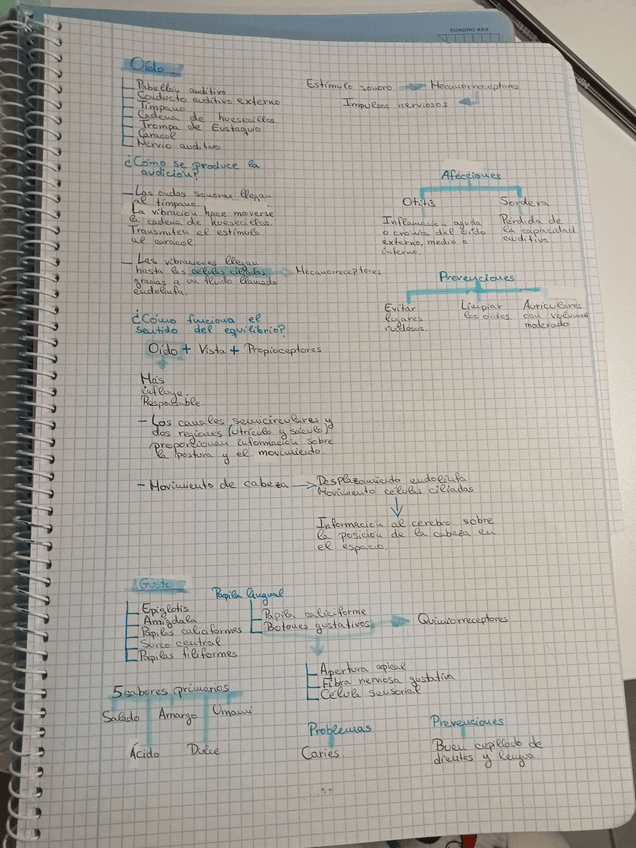 CUADRO 4X4
Oído
Pabellón auditivo
Conducto auditivo externo
Tímpano
Cadena de huesecillos
Trompa de Eustaquio
Caracol
Nervio auditivo
Estímulo sonoro → Mecanorreceptores
Impulsos nerviosos ←
¿Cómo se produce la
audición?
- Las ondas sonoras llegan
al tímpano.
La vibración hace moverse
la cadena de huesecillos.
Transmiten el estímulo
al caracol
- Las vibraciones llegan
hasta las células ciliadas → Mecanorreceptores
gracias a un fluido llamado
endolinfa.
Afecciones
Otitis
Inflamación aguda
o crónica del oído
externo, medio o
interno.
Sordera
Pérdida de
la capacidad
auditiva
Prevenciones
Evitar
lugares
ruidosos.
Limpiar
los oídos
Auriculares
con volumen
moderado
¿Cómo funciona el
sentido del equilibrio?
Oído + Vista + Propioceptores
Más
influye.
Responsable
- Los canales semicirculares y
dos regiones (utrículo y sáculo)
proporcionan información sobre
la postura y el movimiento
- Movimiento de cabeza → Desplazamiento endolinfa
Movimiento células ciliadas
Información al cerebro sobre
la posición de la cabeza en
el espacio.
Gusto
Epiglotis
Amígdala
Papilas caliciformes
Surco central
Papilas filiformes
Papila lingual
Papila caliciforme
Botones gustativos → Quimiorreceptores
Apertura apical
Fibra nerviosa gustativa
Célula sensorial
5 sabores primarios
Salado
Amargo
Umami
Ácido
Dulce
Problemas
Caries
Prevenciones
Buen cepillado de
dientes y lengua